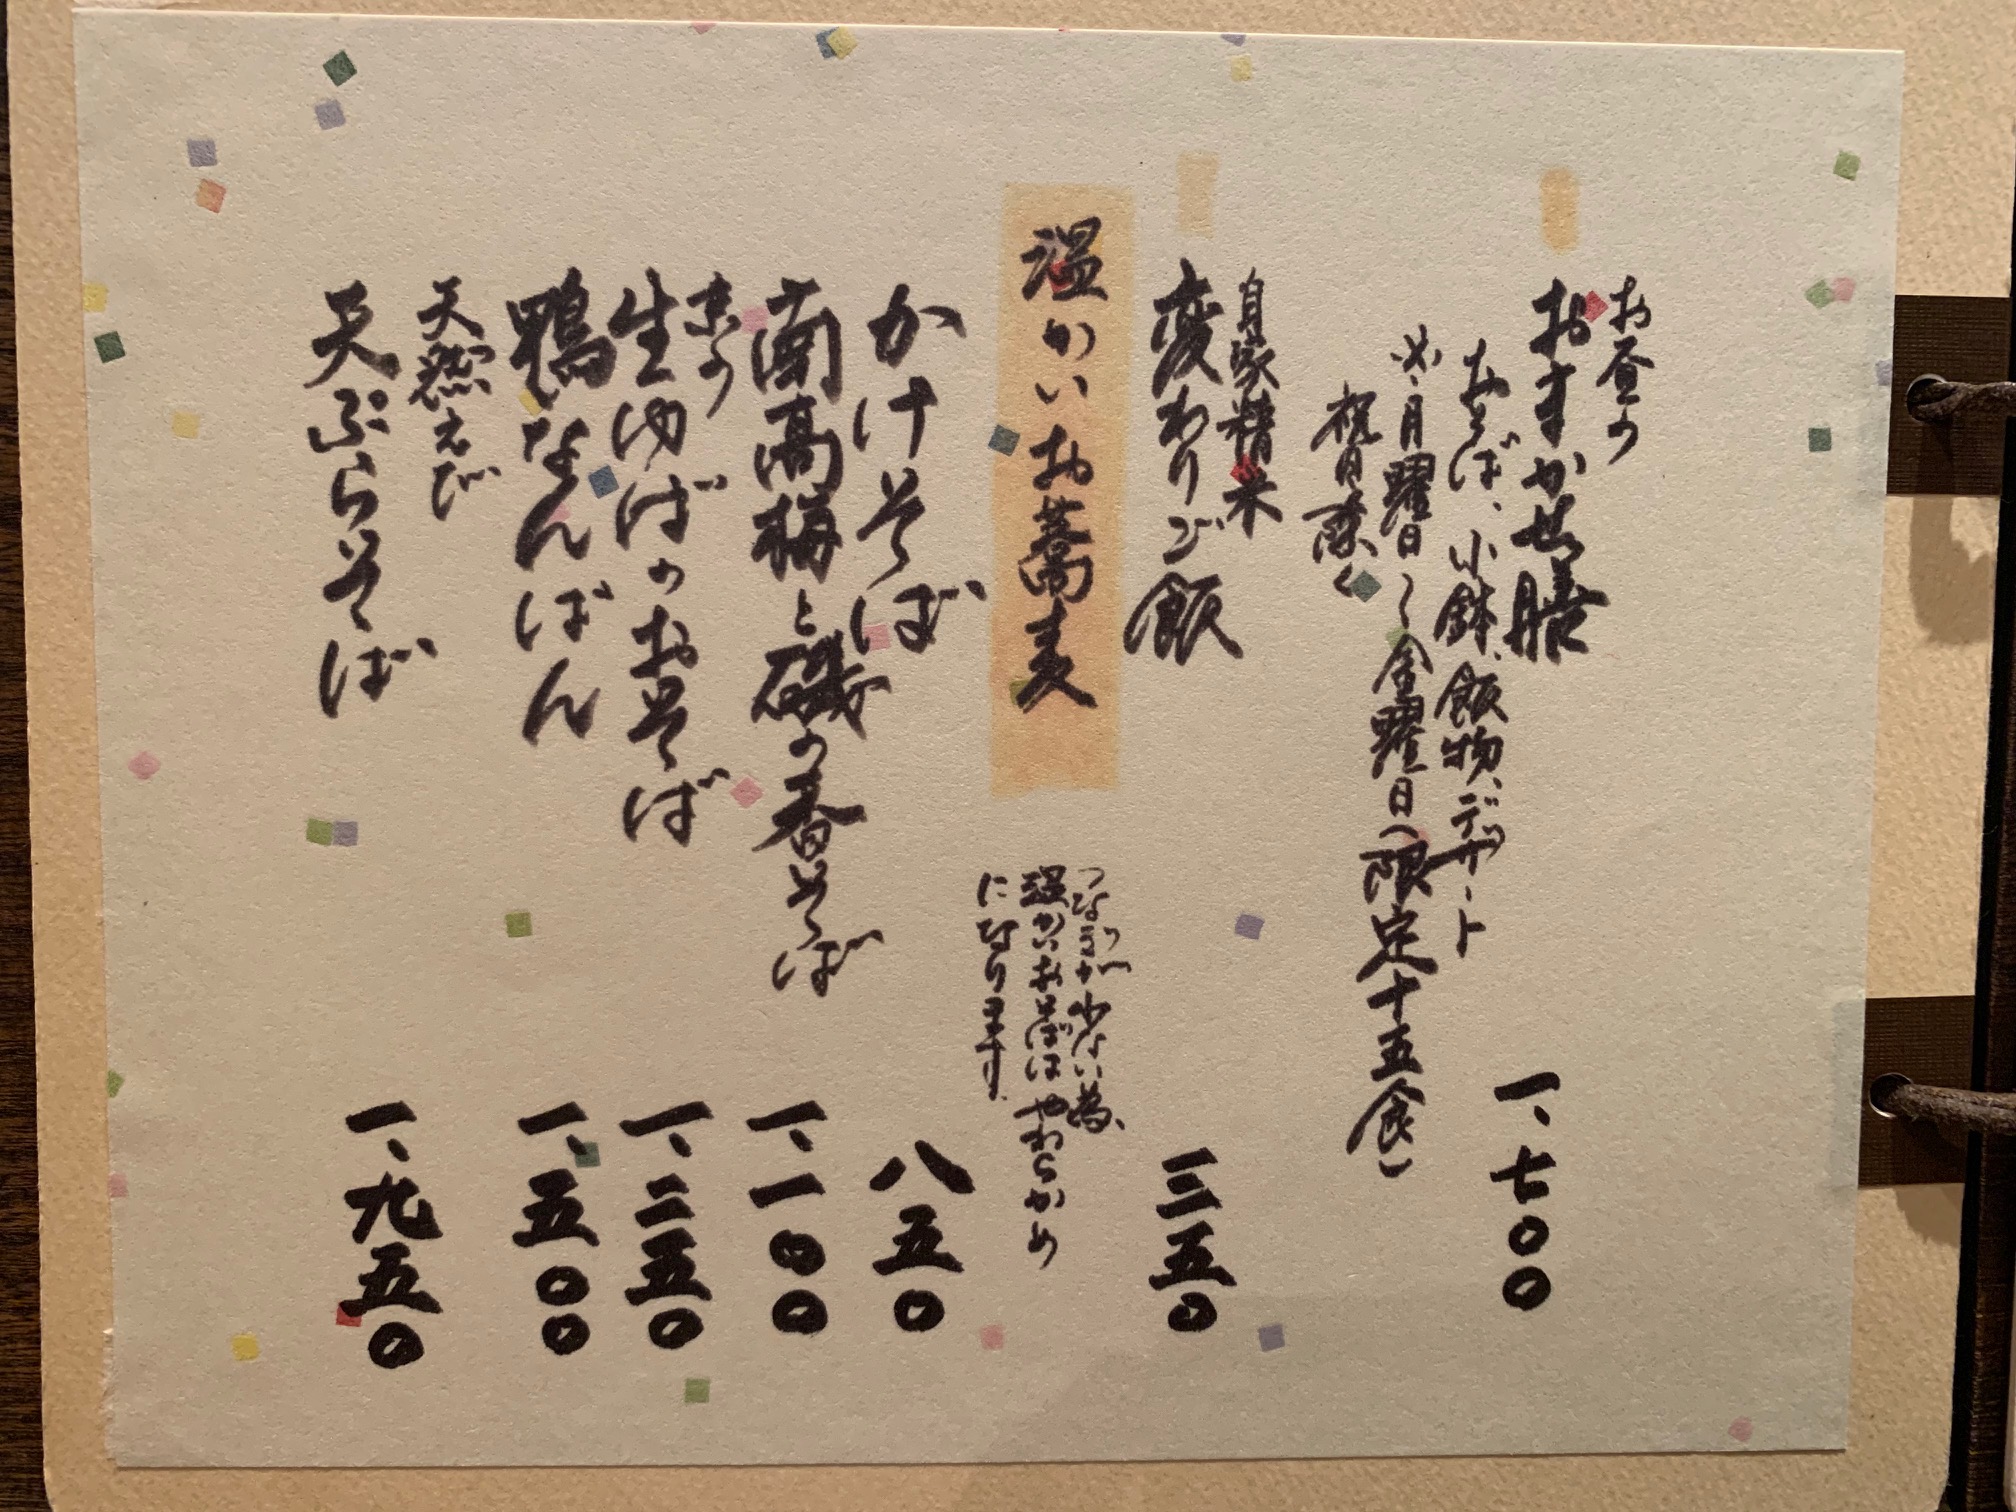 お昼の
おまかせ膳 一、七〇〇
おそば、小鉢、飯物、デザート
※月曜日～金曜日(限定十五食)
祝日除く
自家精米
変わりご飯 三五〇
温かいお蕎麦
つなぎが少ない為、
温かいおそばはやわらかめ
になります。
かけそば 八五〇
南高梅と磯の香そば 一、一〇〇
京の
生ゆばのおそば 一、二五〇
鴨なんばん 一、五〇〇
天然えび
天ぷらそば 一、九五〇